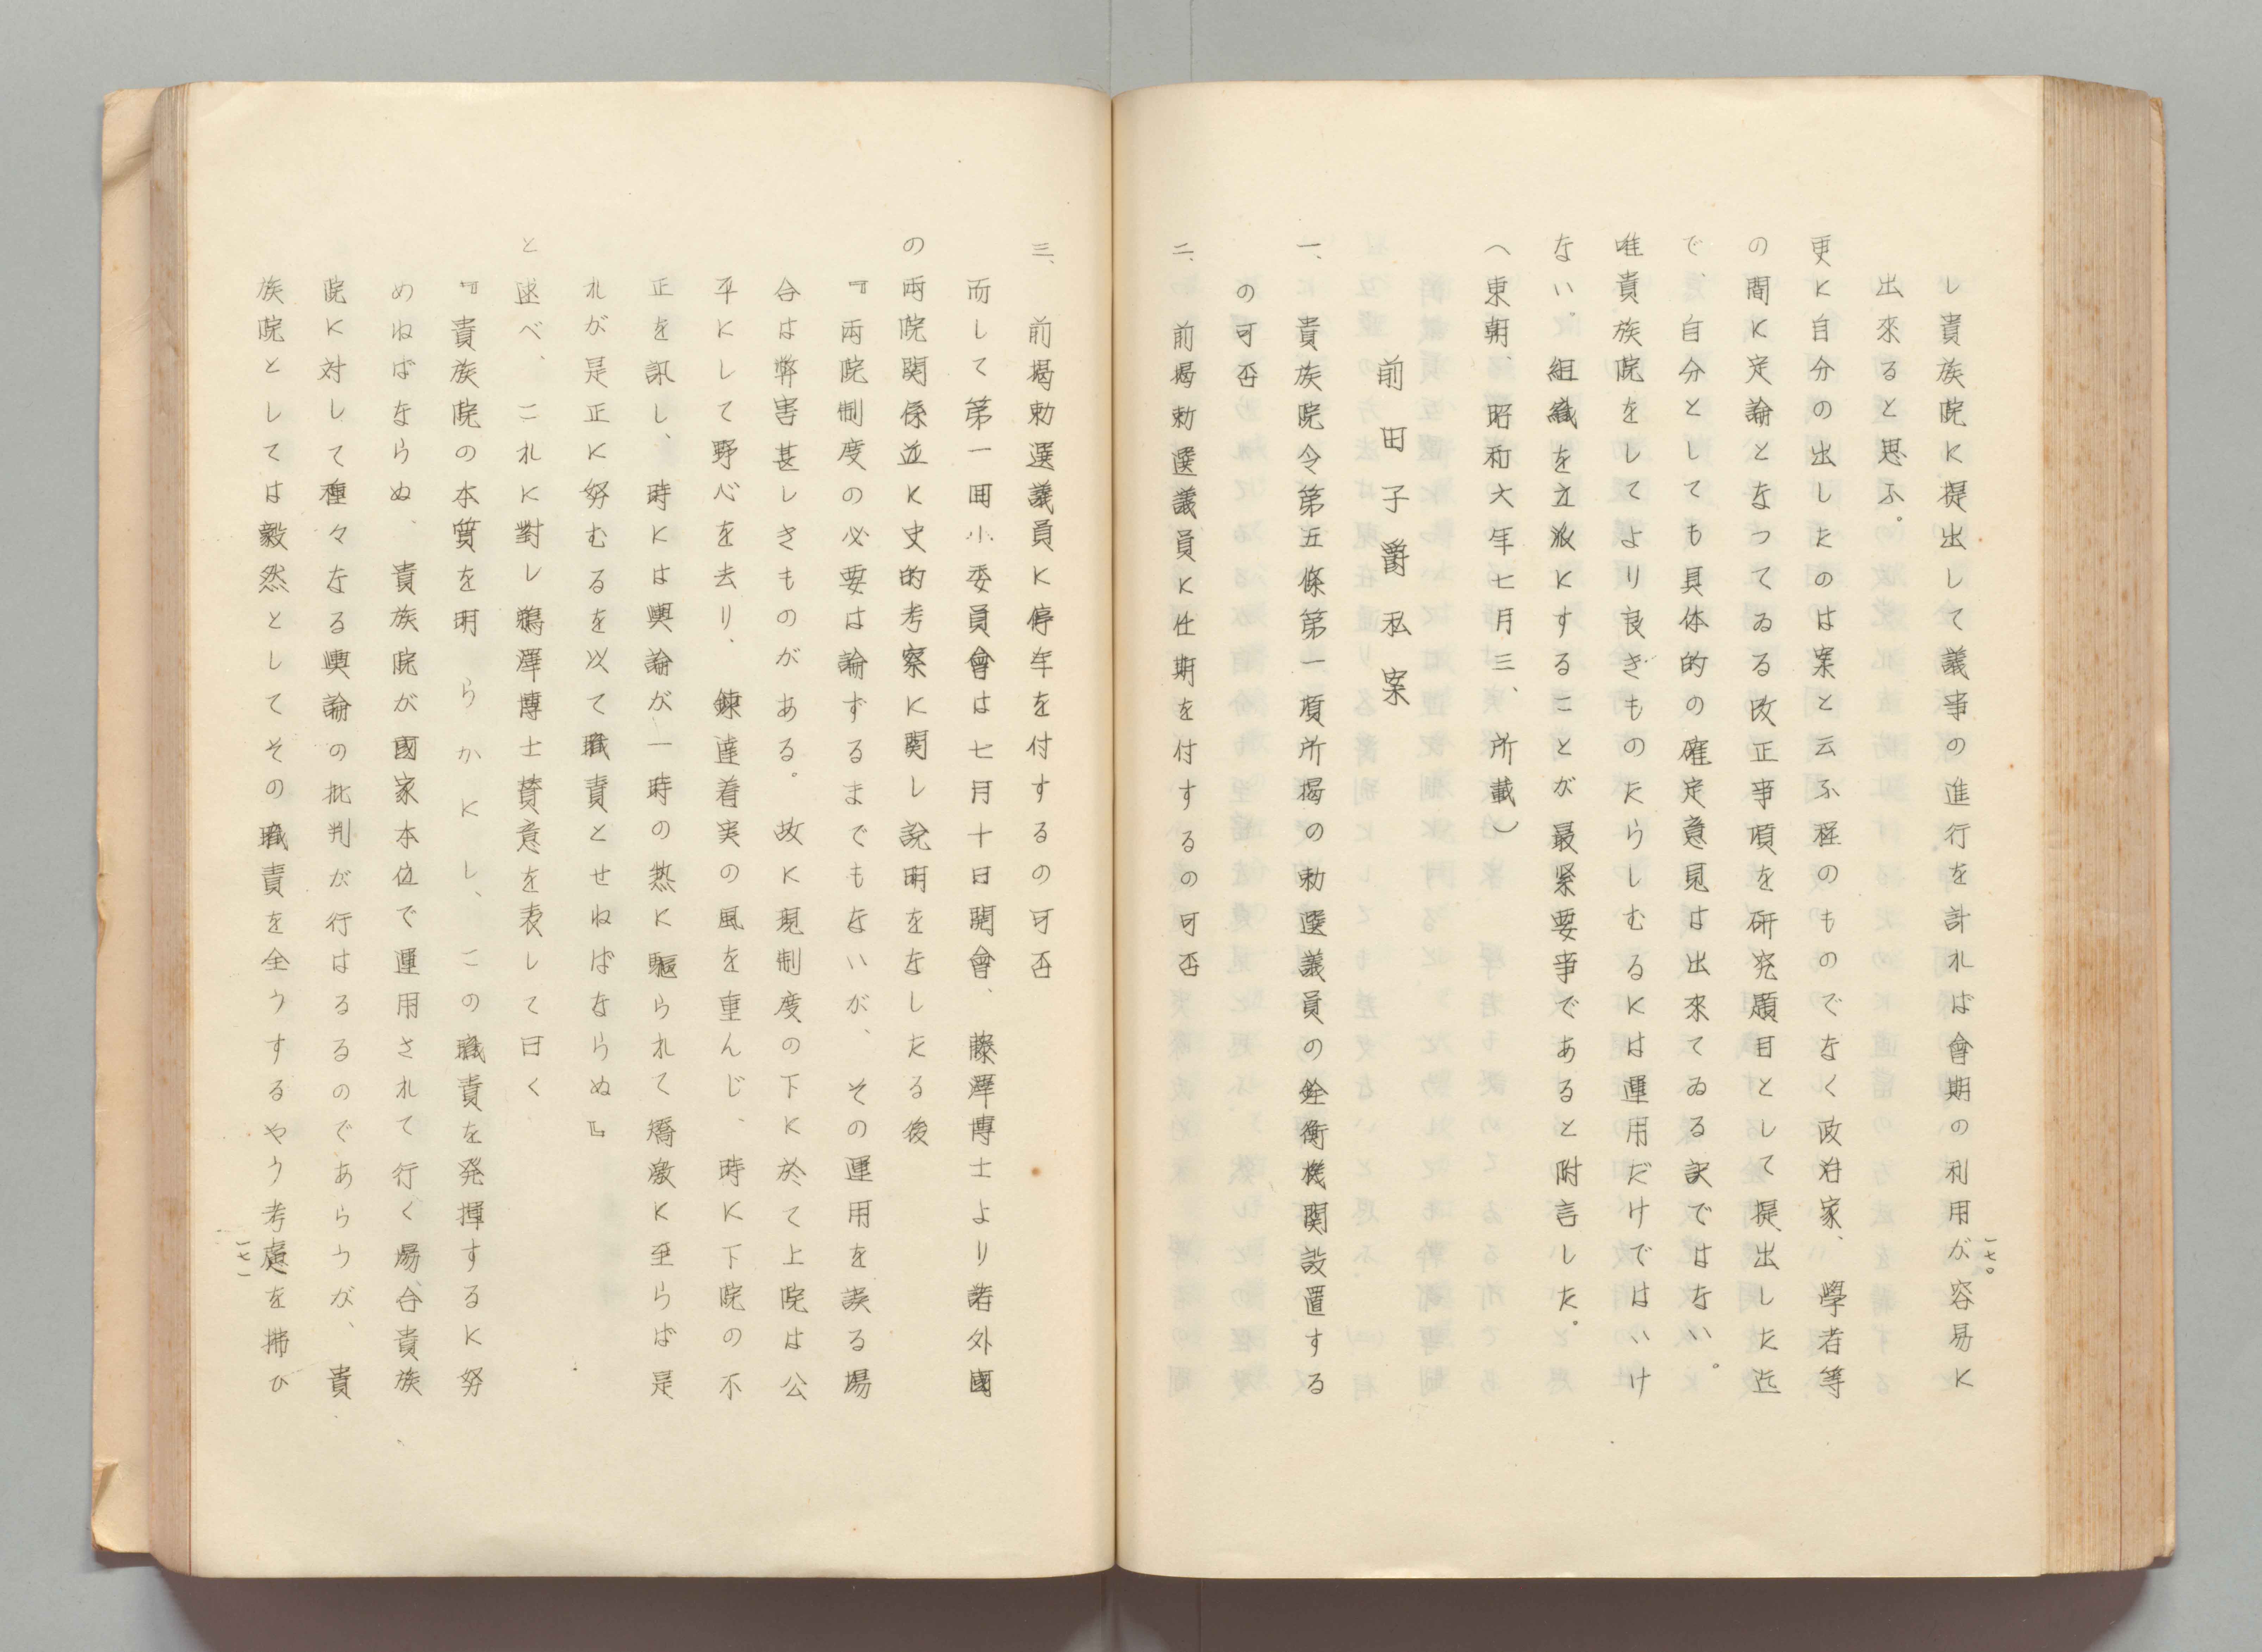 し貴族院に提出して議事の進行を計れば會期の利用が容易に
出來ると思ふ。
更に自分の出したのは案と云ふ程のものでなく政治家、學者等
の間に定論となつてゐる改正事項を研究題目として提出した迄
で、自分としても具体的の確定意見は出來てゐる訳ではない。
唯貴族院をしてより良きものたらしむるには運用だけではいけ
ない。組織を立派にすることが最緊要事であると附言した。
（東朝、昭和六年七月三、所載）
前田子爵私案
一、貴族院令第五條第一項所掲の勅選議員の銓衡機関設置する
の可否
二、前掲勅選議員に任期を付するの可否
一七〇
三、前掲勅選議員に停年を付するの可否
而して第一回小委員會は七月十日開會、藤澤博士より諸外國
の両院関係並に史的考察に関し說明をなしたる後
『両院制度の必要は論ずるまでもないが、その運用を誤る場
合は弊害甚しきものがある。故に現制度の下に於て上院は公
平にして野心を去り、錬達着実の風を重んじ、時に下院の不
正を訊し、時には輿論が一時の熱に驅られて矯激に至らば是
れが是正に努むるを以て職責とせねばならぬ』
と述べ、これに對し鵜澤博士賛意を表して曰く
『貴族院の本質を明らかにし、この職責を発揮するに努
めねばならぬ、貴族院が國家本位で運用されて行く場合貴族
院に対して種々なる輿論の批判が行はるるのであらうが、貴
族院としては毅然としてその職責を全うするやう考慮を拂ひ
一七一